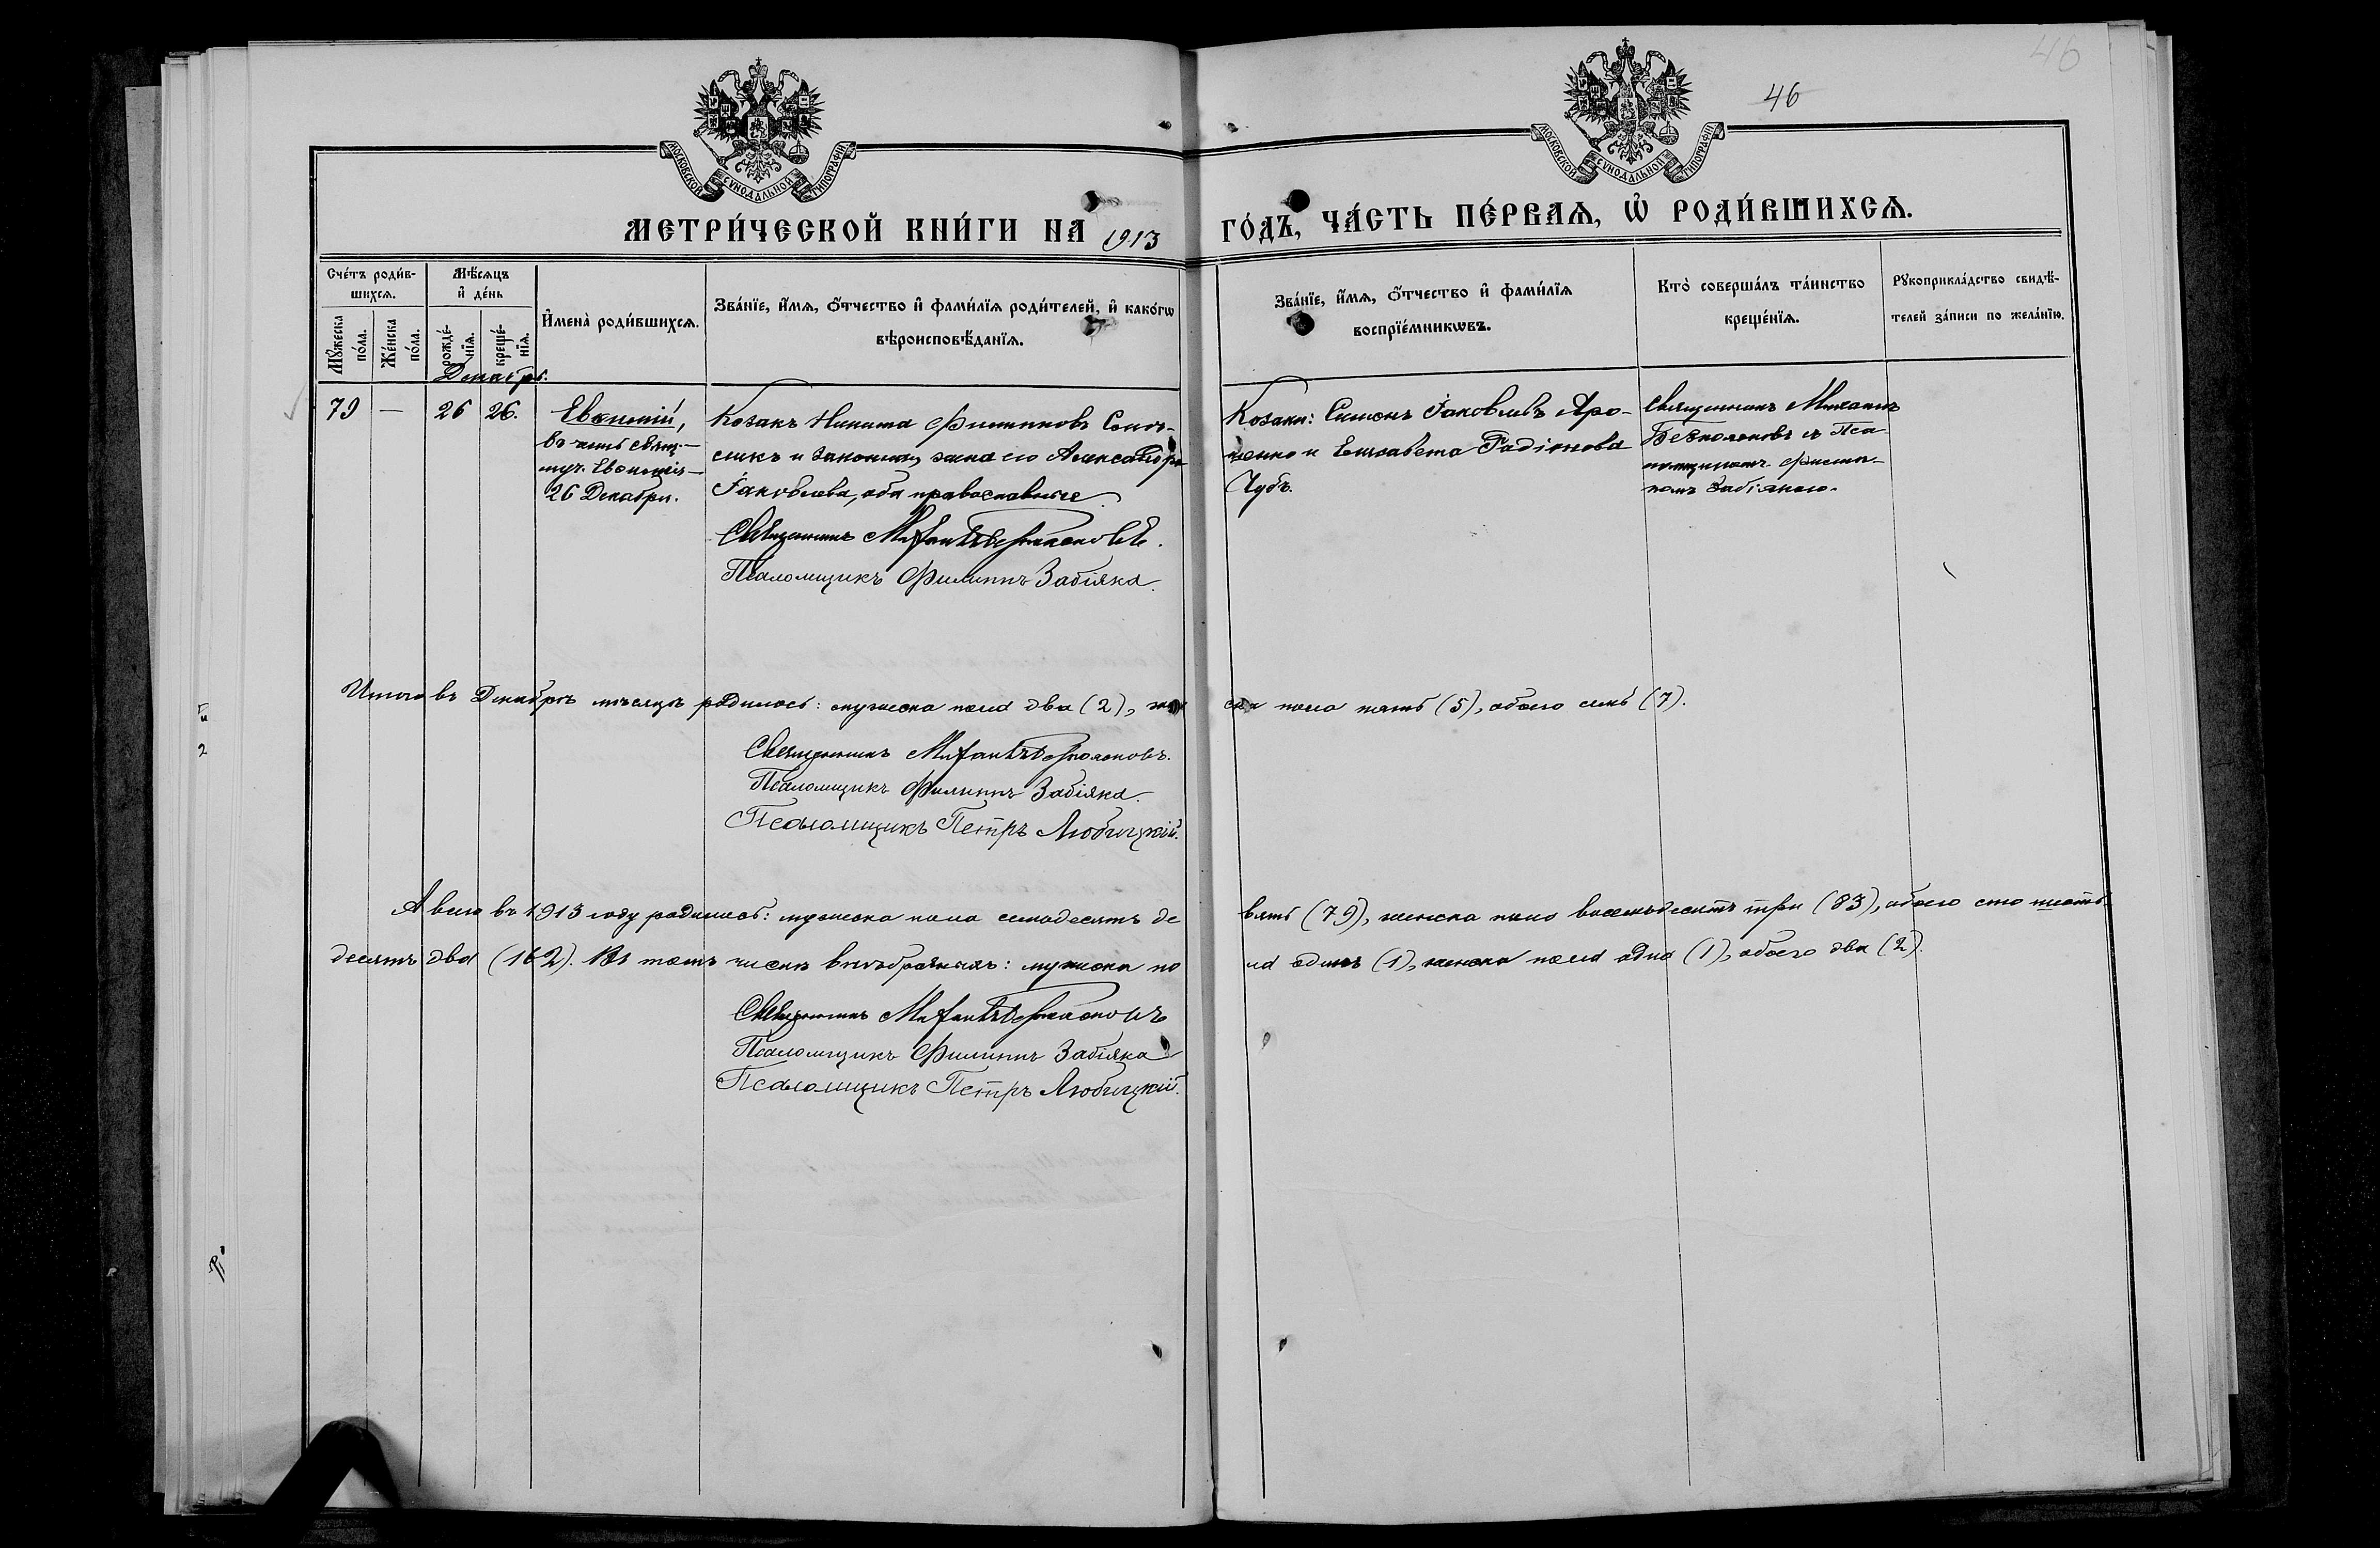 46
46
МОСКОВСКОЙ СѴНОДАЛЬНОЙ ТИПОГРАФІИ
МОСКОВСКОЙ СѴНОДАЛЬНОЙ ТИПОГРАФІИ
МЕТРИ́ЧЕСКОЙ КНИ́ГИ НА 1913 ГО́ДЪ, ЧА́СТЬ ПЕ́РВАѦ, Ѡ҆ РОДИ́ВШИХСѦ.
Сче́тъ роди́в-
шихсѧ.
Мꙋ́жеска по́ла.
Же́нска по́ла.
Мѣ́сѧцъ
и҆ де́нь
рожде́-
нїѧ.
креще́-
нїѧ.
И҆мена̀ роди́вшихсѧ.
Зва́нїе, и҆́мѧ, ѻ҆́тчество и҆ фами́лїѧ роди́телей, и҆ како́гѡ
вѣроисповѣ́данїѧ.
Зва́нїе, и҆́мѧ, ѻ҆́тчество и҆ фами́лїѧ
воспрїе́мникѡвъ.
Кто̀ соверша́лъ та́инство
креще́нїѧ.
Рꙋкоприкла́дство свидѣ́-
телей за́писи по жела́нїю.
Декабрь.
79 — 26 26.
Евѳимій,
въ честь свящ.-
муч. Евѳимія
26 Декабря.
Козакъ Никита Филиповъ
и законная жена его Александра
Іаковлева, оба православные
Священникъ Михаилъ Безпоясковъ.
Псаломщикъ Филиппъ Забіяка.
Козаки: Симонъ Іаковлевъ Яро-
и Елисавета Радіонова
Чубъ.
Священникъ Михаилъ
Безпоясковъ съ Пса-
ломщикомъ Филип-
помъ Забіякою.
Итого въ Декабрѣ мѣсяцѣ родилось: мужеска пола два (2), жен ска пола пять (5), обоего семь (7).
Священникъ Михаилъ Безпоясковъ.
Псаломщикъ Филиппъ Забіяка.
Псаломщикъ Петръ Любицкій.
А всего въ 1913 году родилось: мужеска пола семьдесятъ де вять (79), женска пола восемьдесятъ три (83), обоего сто шесть-
десятъ два (162). Въ томъ числѣ внѣбрачныхъ: мужеска по ла одинъ (1), женска пола одна (1), обоего два (2).
Священникъ Михаилъ Безпоясковъ
Псаломщикъ Филиппъ Забіяка
Псаломщикъ Петръ Любицкій.